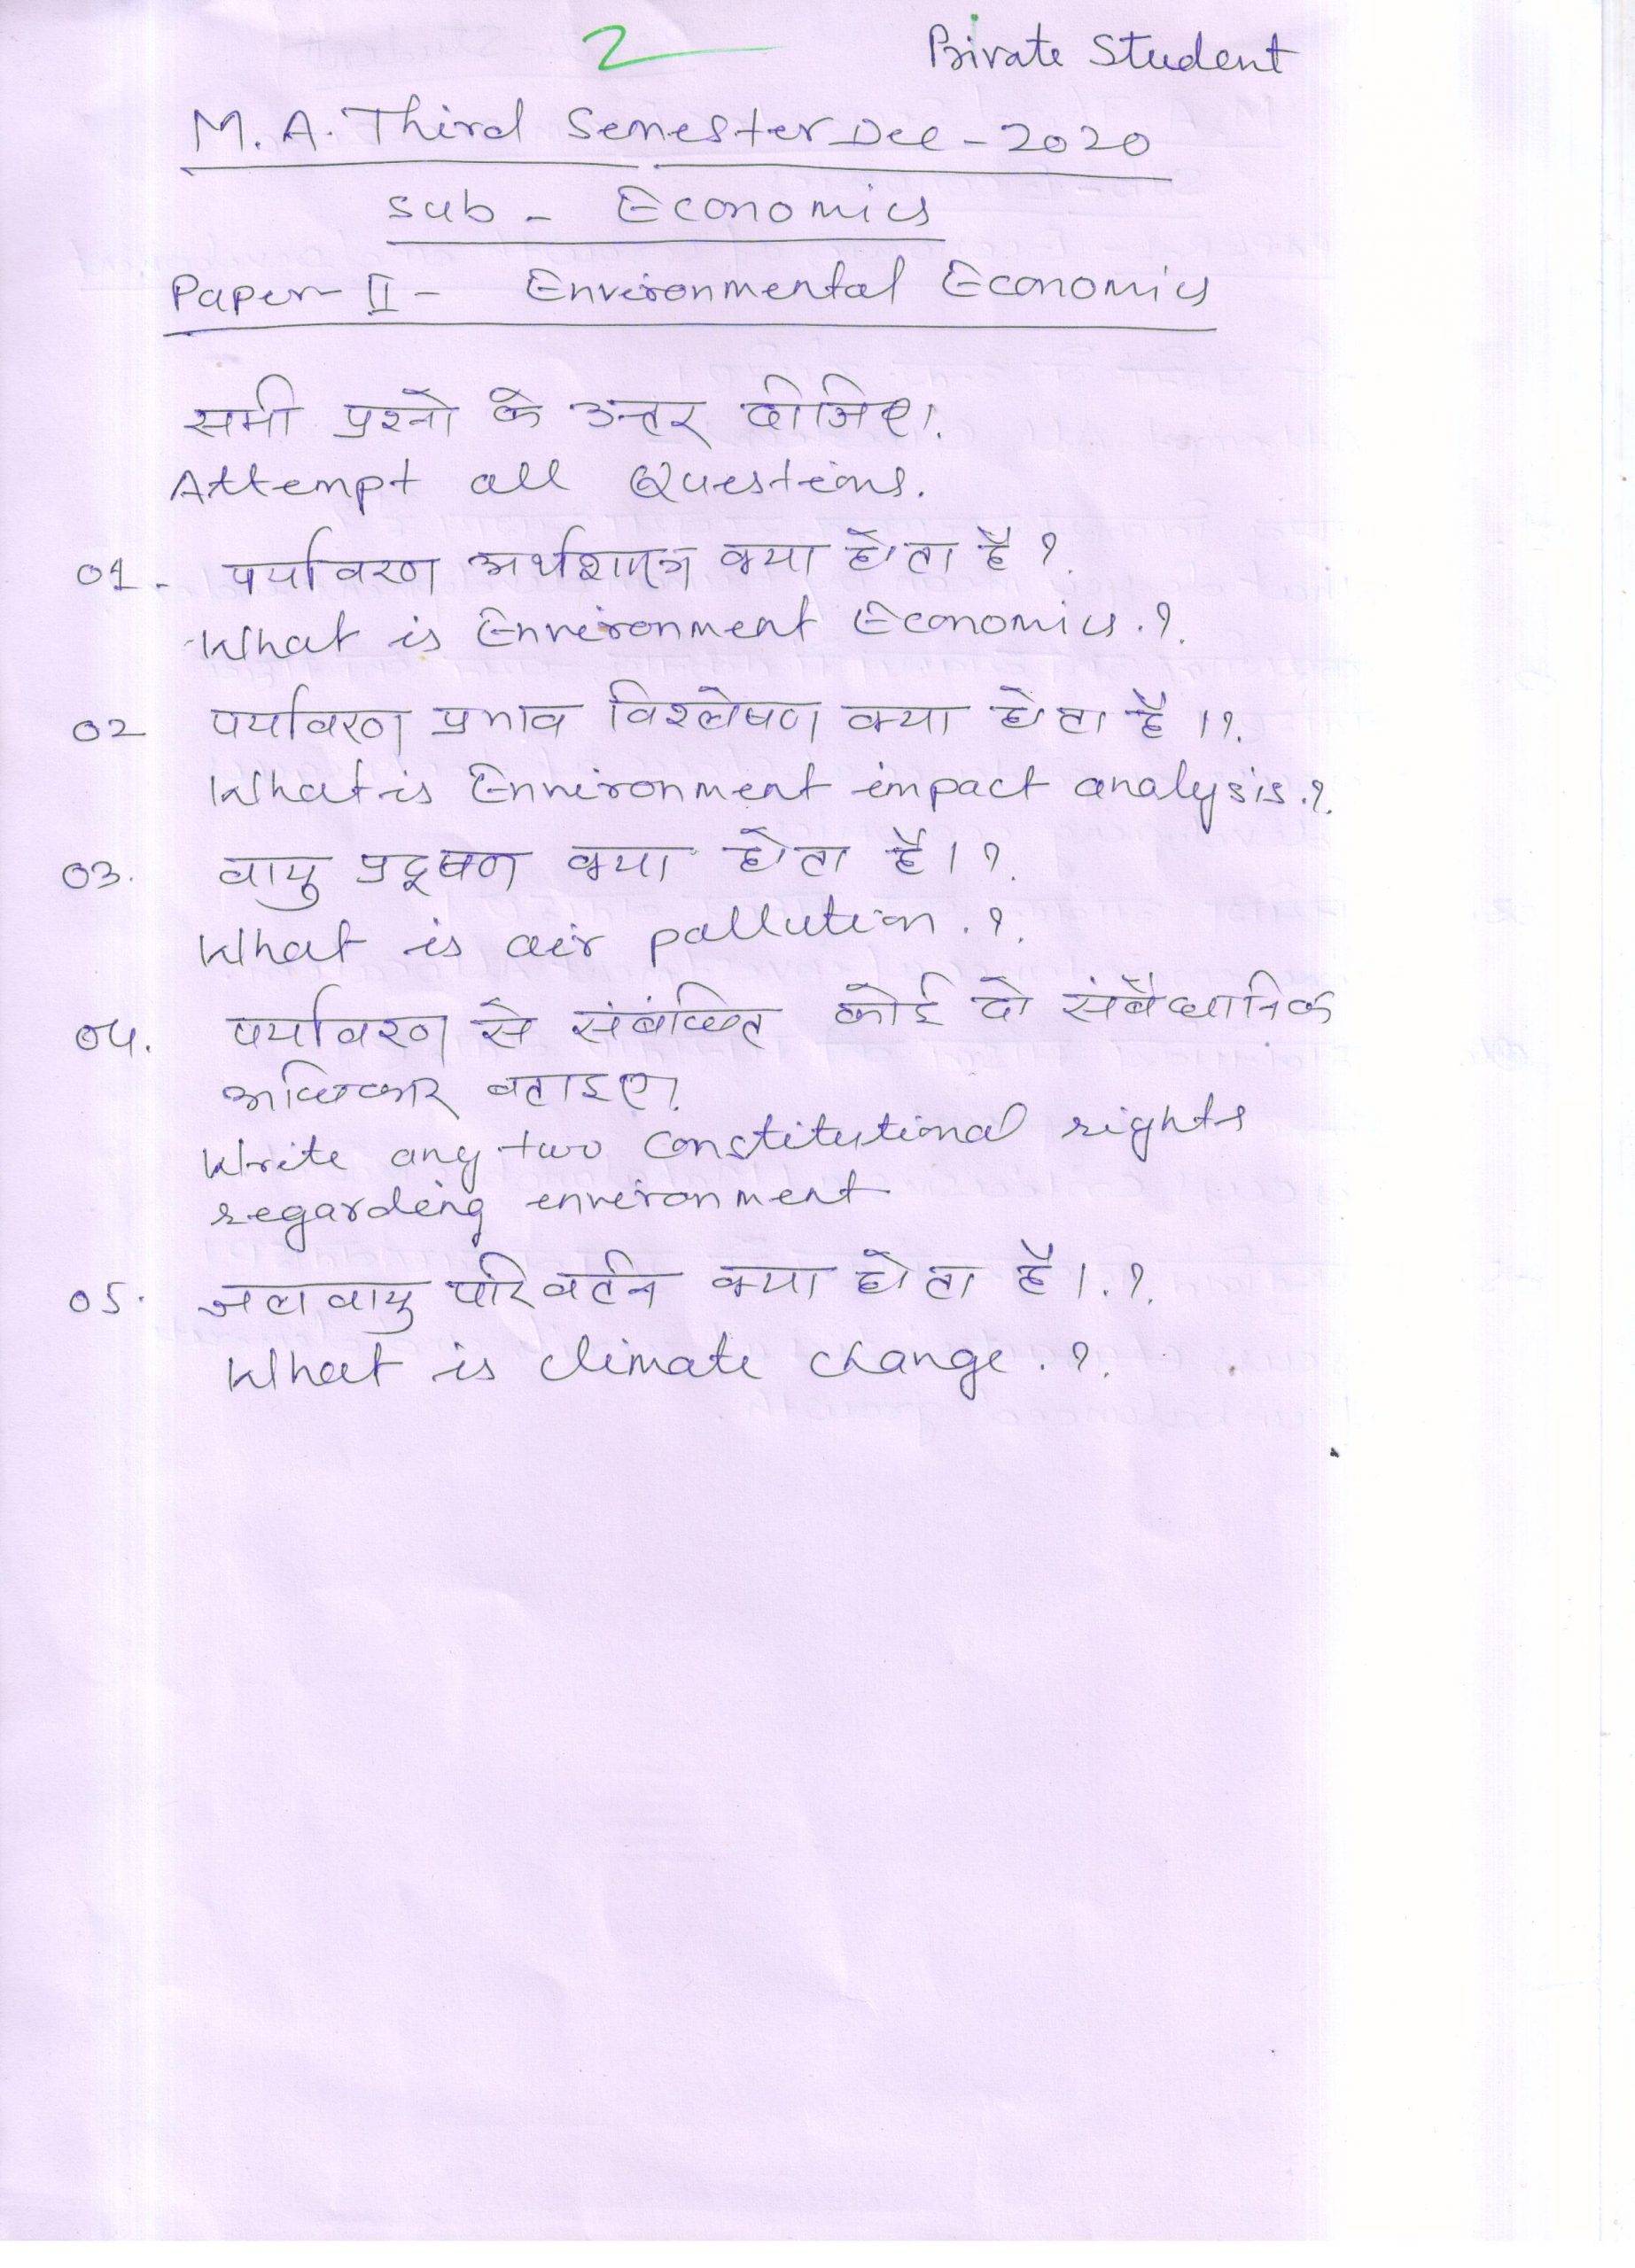 2
Private Student
M.A. Third Semester Dec - 2020
Sub - Economics
Paper - II - Environmental Economics
सभी प्रश्नो के उत्तर दीजिए।
Attempt all Questions.
01 - पर्यावरण अर्थशास्त्र क्या होता है ?
What is Environment Economics. ?
02 पर्यावरण प्रभाव विश्लेषण क्या होता है । ?
What is Environment impact analysis. ?
03. वायु प्रदूषण क्या होता है । ?
What is air pallution. ?
04. पर्यावरण से संबंधित कोई दो संवैधानिक
अधिकार बताइए।
Write any two constitutional rights
regarding environment
05. जलवायु परिवर्तन क्या होता है । . ?
What is climate change. ?